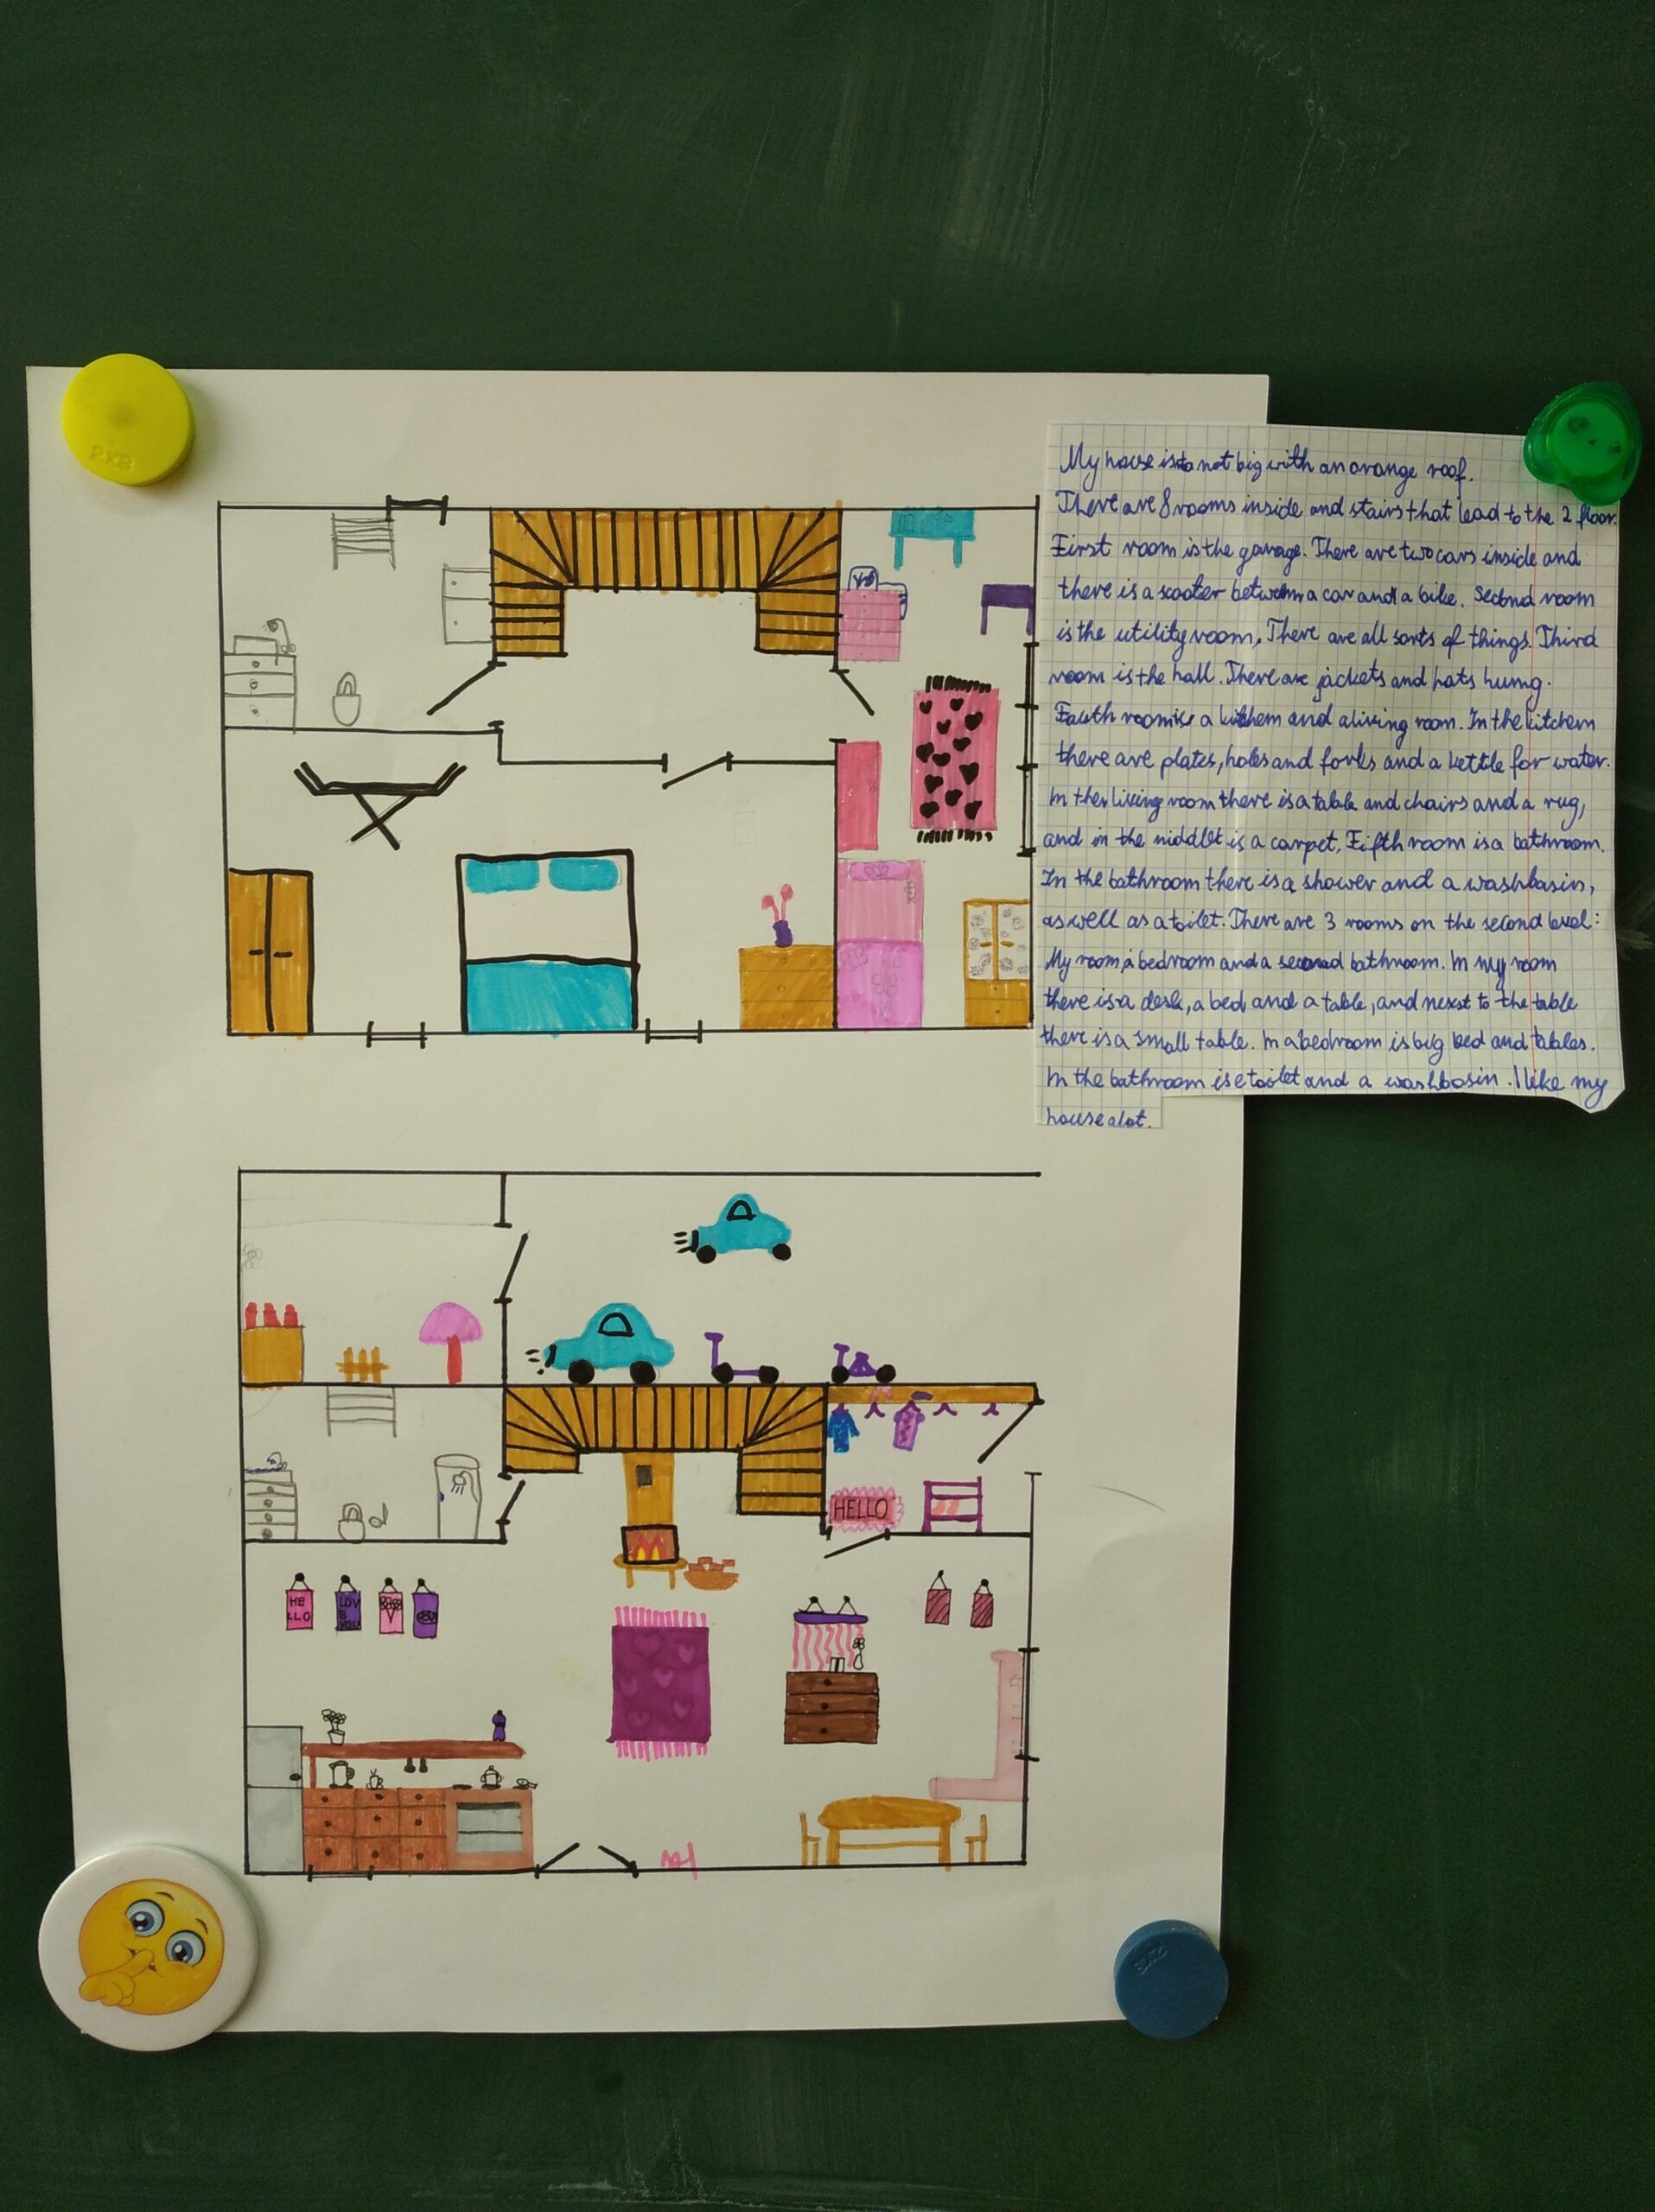 My house is not big with an orange roof.
There are 8 rooms inside and stairs that lead to the 2 floor.
First room is the garage. There are two cars inside and
there is a scooter between a car and a bike. Second room
is the utility room, There are all sorts of things. Third
room is the hall. There are jackets and hats hung.
Fourth room is a kitchen and a living room. In the kitchen
there are plates, holes and forks and a kettle for water.
In the living room there is a table and chairs and a rug,
and in the middlet is a carpet. Fifth room is a bathroom.
In the bathroom there is a shower and a washbasin,
as well as a toilet. There are 3 rooms on the second level:
My room, a bedroom and a second bathroom. In my room
there is a desk, a bed and a table, and nexst to the table
there is a small table. In a bedroom is big bed and tables.
In the bathroom is e toilet and a washbasin. I like my
house alot.
HELLO
HE
LLO
LOV
E
YOU